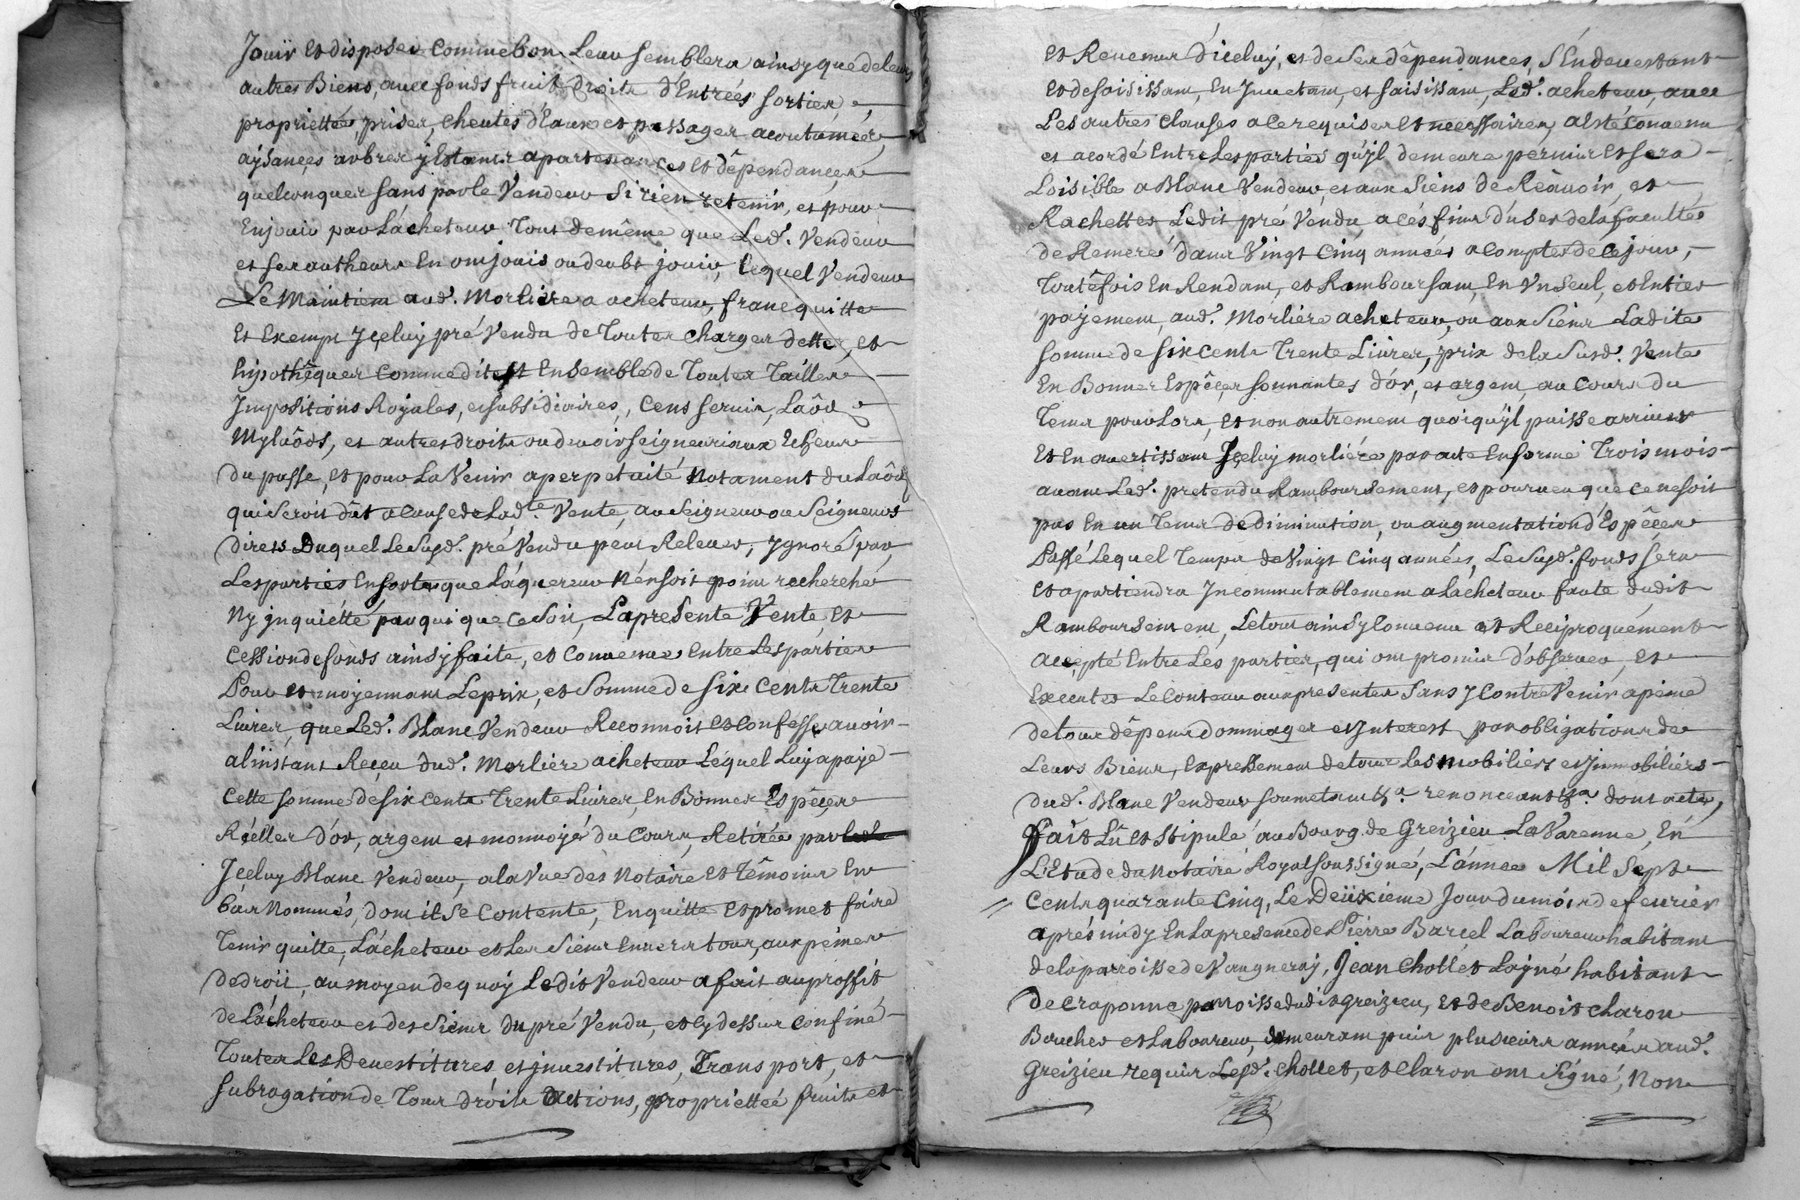 Jouir et disposer comme bon Leur semblera ainsy que de leurs
autres Biens, avec fonds fruits Droits d'Entrées sorties,
propriettés prises, cheutes d'Eaux et passages acoutumées,
aysances arbres y Estants apartenances et dêpendances
quelconques sans par le Vendeur si rien retenir, et pour
En jouir par L'acheteur Tout de même que Led. Vendeur
et ses autheurs En ont jouis ou deubt jouir, lequel Vendeur
Le Maintient aud. Morlière acheteur, franc quitte
Et Exempt Jceluy pré Vendu de Toutes charges dettes, et
hipothêques comme dit est Ensemble de Toutes Tailles
Jmpositions Royales, et subsidiaires, Cens servis, Laôds
Mylaôds, et autres droits ou devoirs seigneuriaux Echeus
du passé, et pour La Venir a perpetuité notament du Laôd
qui seroit dût a cause de Ladte. Vente, au Seigneur ou Seigneurs
direts Duquel Le Susd. pré Vendu peut Relever, Jgnoré par
Les parties En sorte que L'aquereur n'en soit point recherché
Ny jnquiétté par qui que ce soit, La presente Vente, et
Cession de fonds ainsy faite, et Convenue Entre Les parties
Pour et moyennant Le prix, et Somme de Six Cents Trente
Livres, que Led. Blanc Vendeur Reconnoit et confesse avoir
a l'instant Reçeu dud. Morlière acheteur Lequel Luy a payé
Cette somme de six cents Trente Livres, En Bonnes Espêçes
Réelles d'or, argent et monnoyé du Cours, Retirée par
Jceluy Blanc Vendeur, a la Vue des Notaire et Têmoins En
bas Nommés, dont il Se Contente, En quitte et promet faire
Tenir quitte, L'acheteur et Les Siens Envers tous, aux peines
de droit, au moyen de quoy Ledit Vendeur a fait au proffit
de L'acheteur et des Siens du pré Vendu, et Cy dessus confiné
Toutes Les Devestitures et jnvestitures, Transport, et
subrogation de Tous droits Actions, propriettée fruits et
et Revenus d'iceluy, et de ses dêpendances, S'En devestant
et desaisissant, En Jnvetant, et saisissant, Led. acheteur, avec
Les autres clauses a ce requises et necessaires, a esté Convenu
et acordé Entre Les parties qu'jl demeure permis et sera
Loisible a Blanc Vendeur, et aux Siens de Réavoir, et
Rachetter Ledit pré Vendu, a cés fins d'user de la faculté
de Remeré dans Vingt Cinq années a Compter de ce jour,
Toutêfois En Rendant, et Remboursant, En Vn Seul, et Entier
payement, aud. Morliére acheteur, ou aux Siens Ladite
somme de six cents Trente Livres, prix de la Susd. Vente
En Bonnes Espêçes sonnantes d'or, et argent, au Cours du
Tems pour Lors, et non autrement quoiqu'jl puisse arriver
Et En avertissant Jceluy morliére par acte En forme Trois mois
avant Led. pretendu Remboursement, et pourveu que ce ne soit
pas En un Tems de diminution, ou augmentation d'Espêçes
Passé Lequel Temps de Vingt Cinq années, Le Susd. fonds sera
et apartiendra Jncommutablement a L'acheteur faute dudit
Remboursement, Le tout ainsy Convenu et Reciproquement
accepté Entre Les parties, qui ont promis d'observer, et
Executer Le Contenu aux presentes Sans y ContreVenir a peine
de tous dêpens dommages et Jnterest par obligations de
Leurs Biens, Expressement de tous Les mobiliers et jmmobiliers
dud. Blanc Vendeur soumetant &a. renonceant &a. dont acte,
Fait Lû et Stipulé au Bourg de Greizieu La Varenne, En
L'Etude du Notaire Royal soussigné, L'année Mil Sept
Cents quarante Cinq, Le Deüxieme Jour du mois de fevrier
aprés midy En la presence de Pierre Barcel Laboureur habitant
de la parroisse de Vaugneray, Jean Chollet Layné habitant
de Craponne parroisse dudit Greizieu, et de Benoit Charon
Boucher et Laboureur, demeurant puis plusieurs années aud.
Greizieu requis Lesd. Chollet, et Claron ont Signé, Non